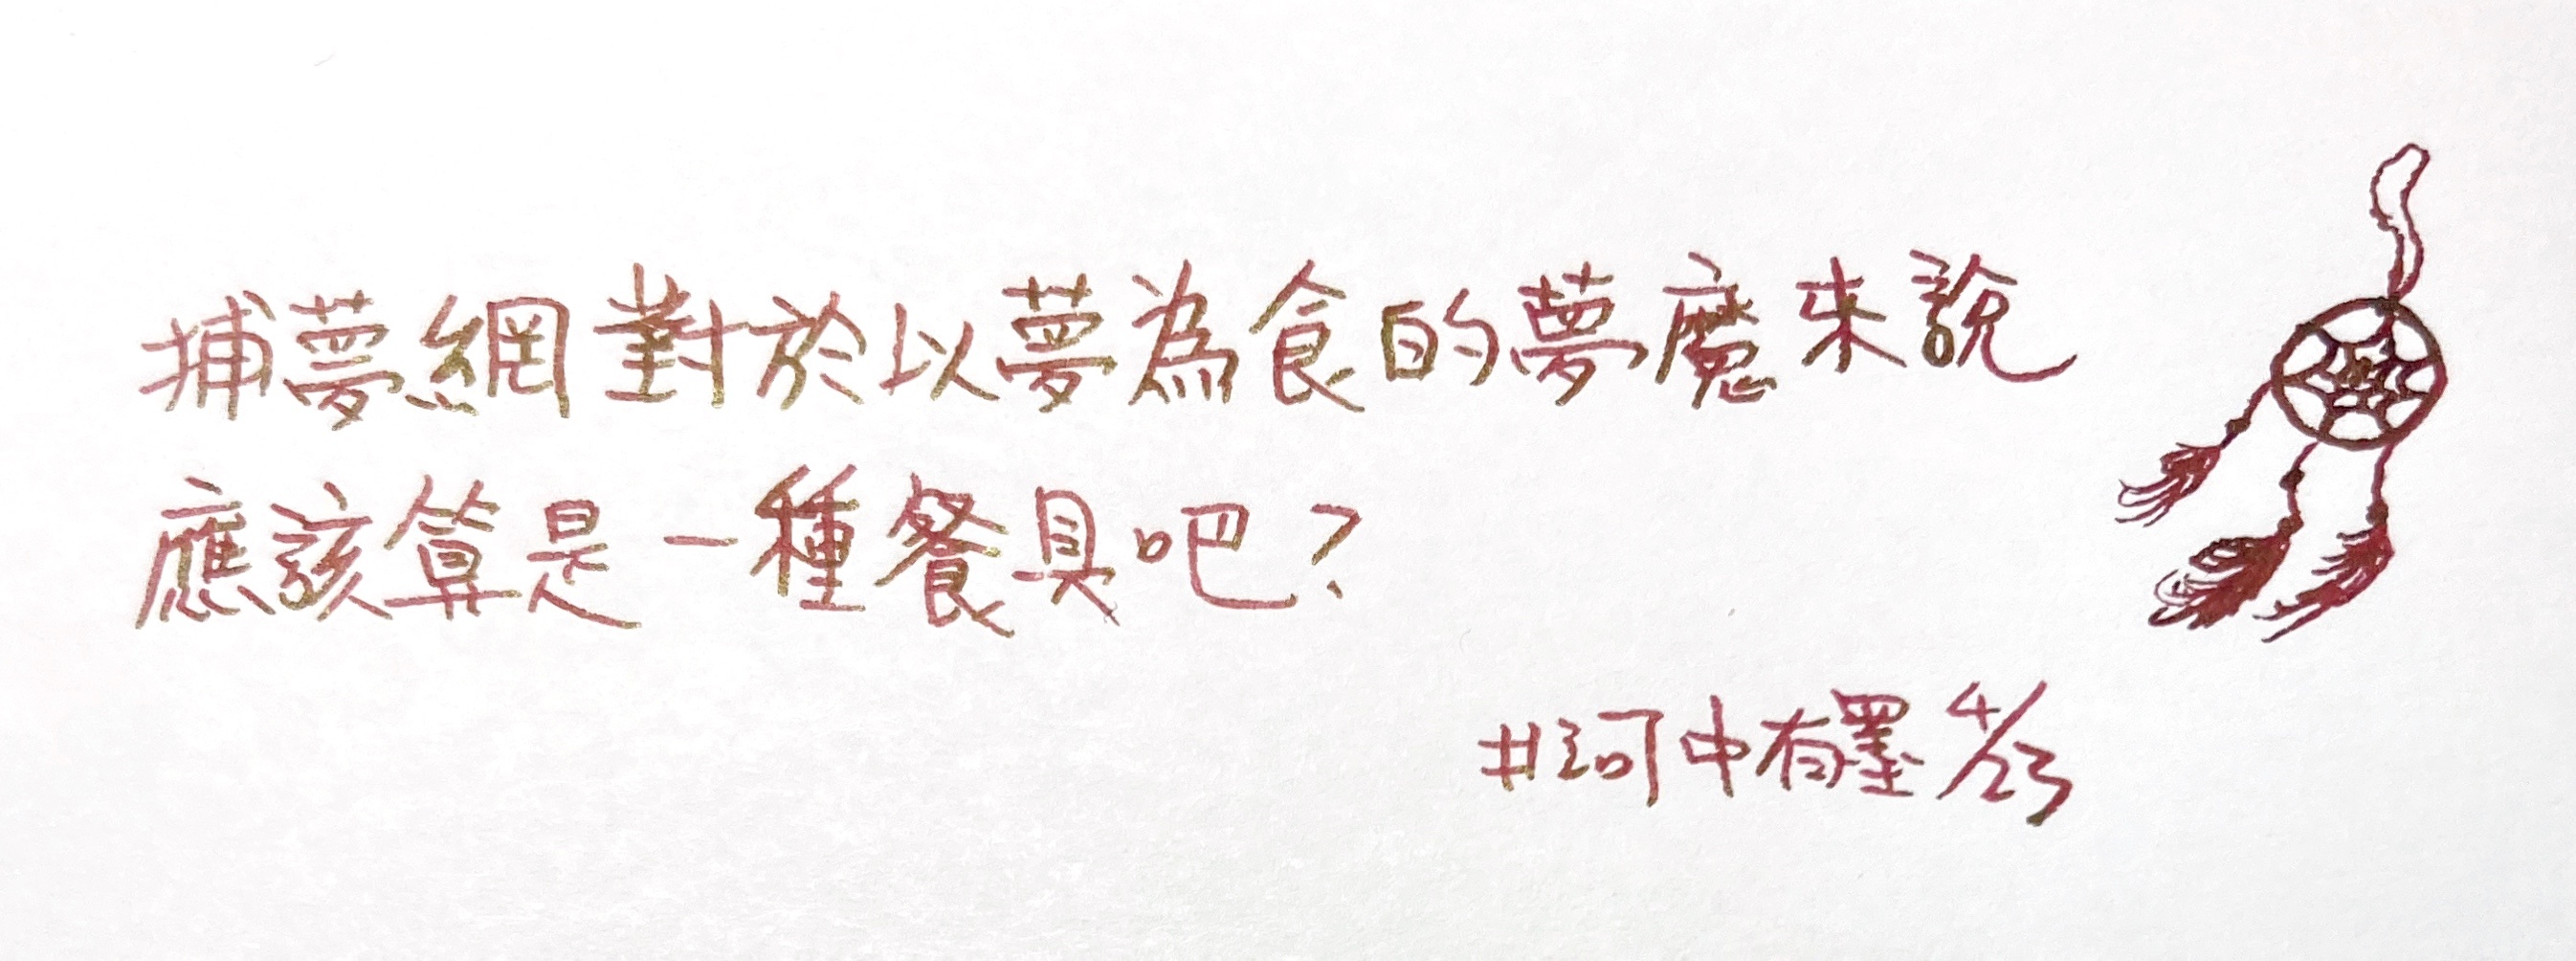 捕夢網對於以夢為食的夢魔來說
應該算是一種餐具吧？
#珂中有墨 4/23